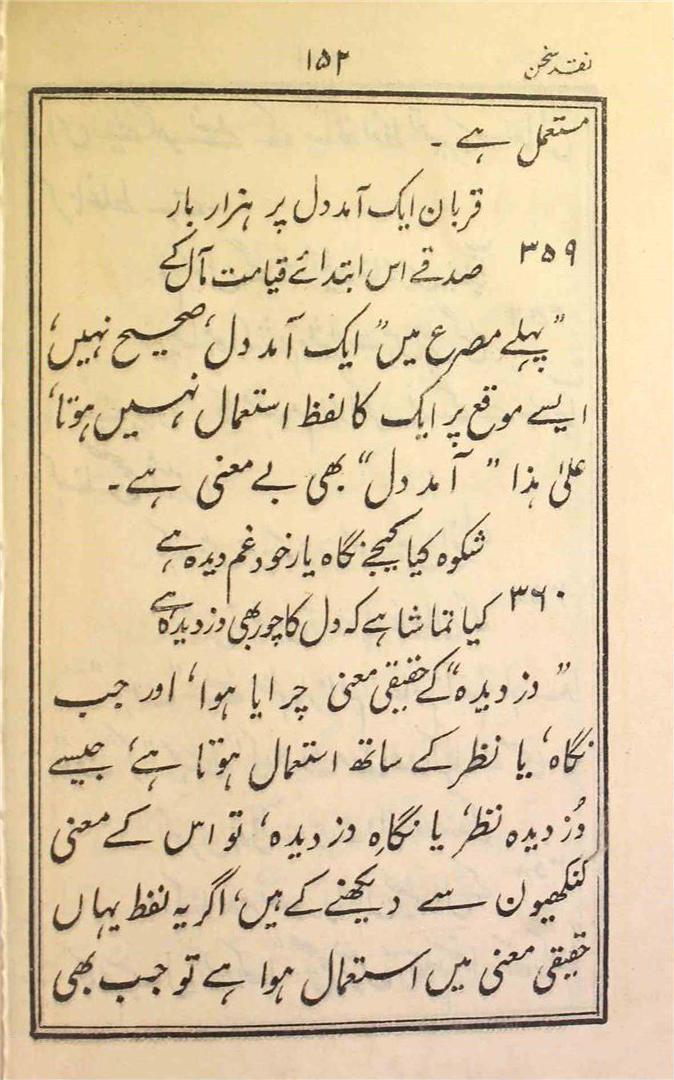 نقد سخن ۱۵۲
مستعمل ہے ۔
قربان ایک آمد دل پر ہزار بار
۳۵۹
صدقے اس ابتدائے قیامت مآل کے
”پہلے مصرع میں” ایک آمد دل‘ صحیح نہیں‘
ایسے موقع پر ایک کا لفظ استعمال نہیں ہوتا‘
علیٰ ہذا ” آمد دل“ بھی بے معنی ہے ۔
شکوہ کیا کیجے نگاہ یار خود غم دیدہ ہے
۳۶۰
کیا تماشا ہے کہ دل کا چور بھی دزدیدہ ہے
” دزدیدہ“ کے حقیقی معنی چرایا ہوا‘ اور جب
نگاہ‘ یا نظر کے ساتھ استعمال ہوتا ہے‘ جیسے
دُزدیدہ نظر‘ یا نگاہِ دزدیدہ‘ تو اس کے معنی
کنکھیون سے دیکھنے کے ہیں‘ اگر یہ لفظ یہاں
حقیقی معنی میں استعمال ہوا ہے تو جب بھی